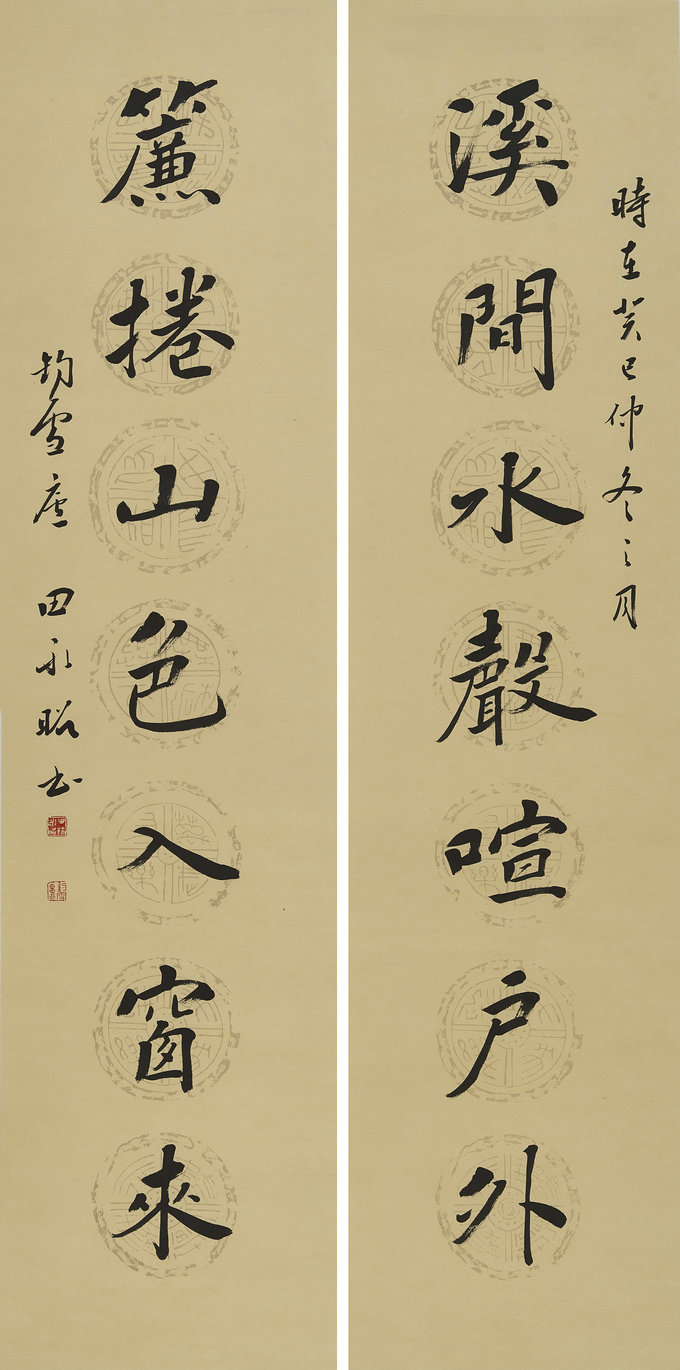 時在癸巳仲冬之月
溪間水聲喧戶外
簾捲山色入窗來
釣雪廬 田永昭書